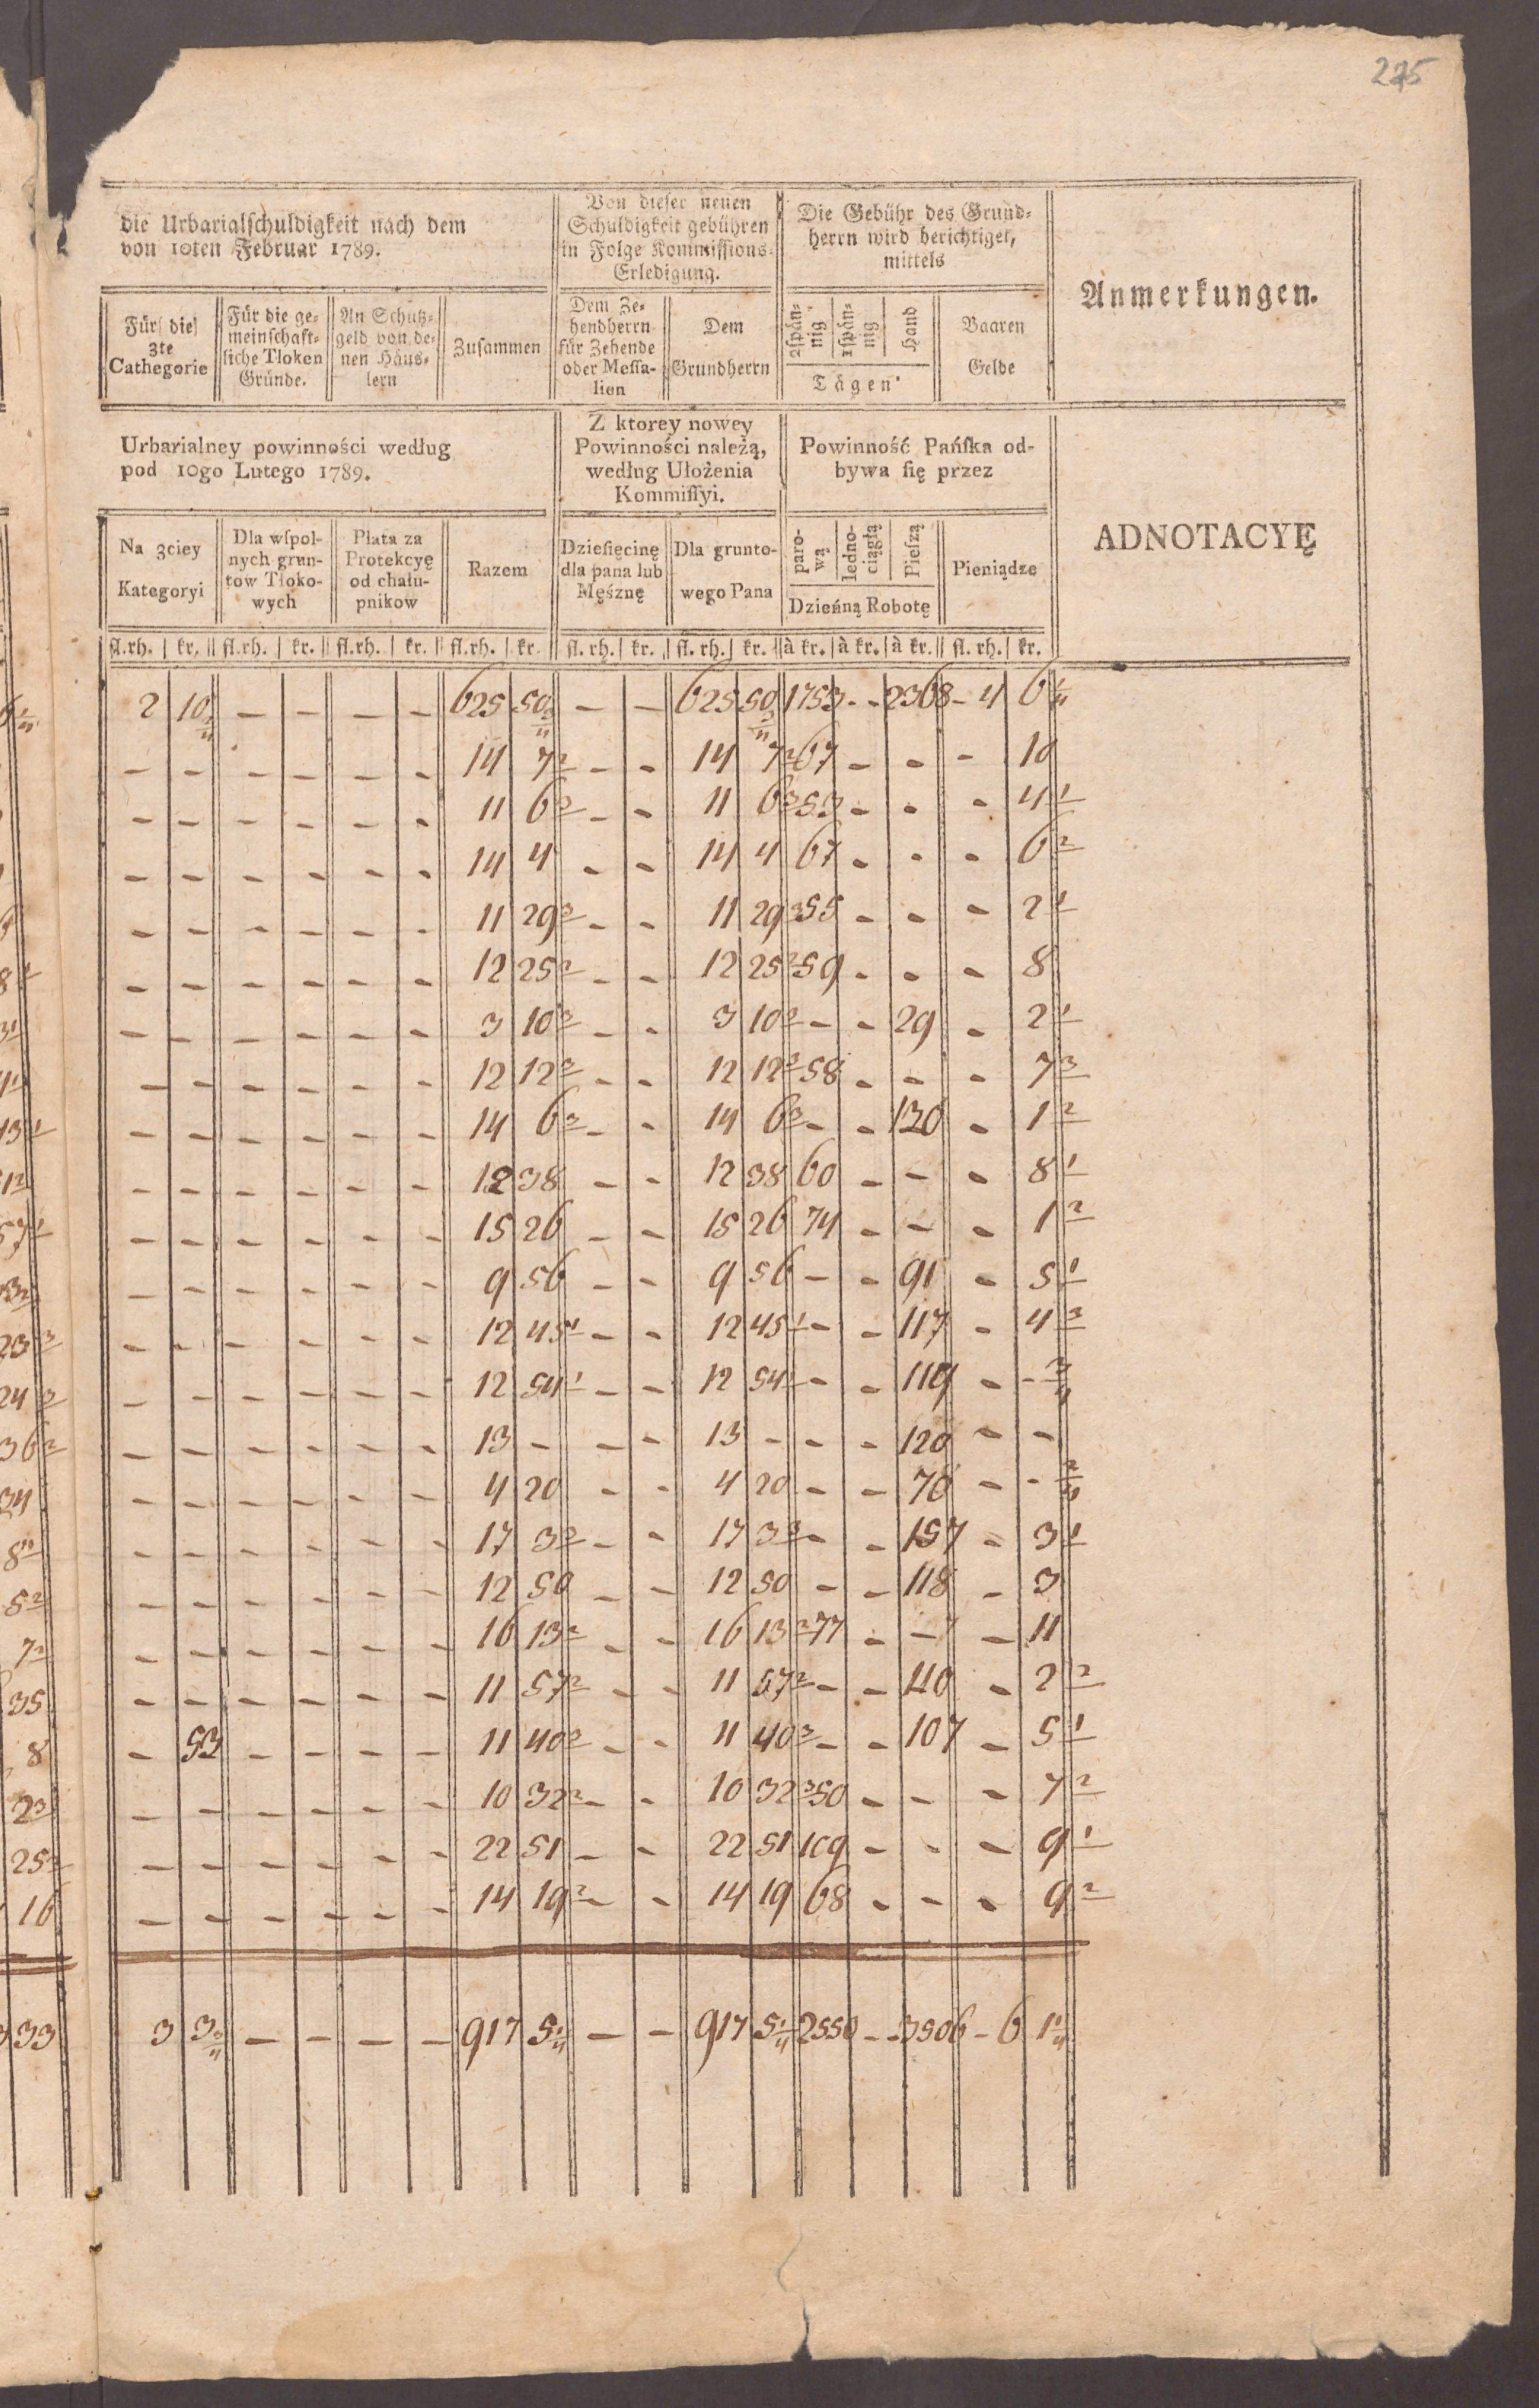 225
die Urbarialſchuldigkeit nach dem
von 10ten Februar 1789.
Von dieſer neuen
Schuldigkeit gebühren
in Folge Kommiſſions-
Erledigung.
Die Gebühr des Grund-
herrn wird berichtiget,
mittels
Anmerkungen.
Für die
3te
Cathegorie
Für die ge-
meinſchaft-
liche Tloken
Gründe.
An Schutz-
geld von de-
nen Häus-
lern
Zuſammen
Dem Ze-
hendherrn
für Zehende
oder Meſſa-
lien
Dem
Grundherrn
2ſpän-
nig
1ſpän-
nig
Hand
Tägen
Baaren
Gelde
Urbarialney powinności według
pod 10go Lutego 1789.
Z ktorey nowey
Powinności należą,
według Ułożenia
Kommiſſyi.
Powinność Pańſka od-
bywa ſię przez
ADNOTACYĘ
Na 3ciey
Kategoryi
Dla wſpol-
nych grun-
tow Tłoko-
wych
Płata za
Protekcyę
od chału-
pnikow
Razem
Dzieſięcinę
dla pana lub
Męśznę
Dla grunto-
wego Pana
paro-
wą
Iedno-
ciągłą
Pieſzą
Dzienną Robotę
Pieniądze
fl.rh. kr. fl.rh. kr. fl.rh. kr. fl.rh. kr. fl. rh. kr. fl. rh. kr. à kr. à kr. à kr. fl. rh. kr.
2 10 3/4 – – – – 625 50 3/4 – – 625 50 3/4 1753 – – 2368 – 4 6 1/4
– – – – – – 14 7 2 – – 14 7 2 67 – – – 10
– – – – – – 11 6 3 – – 11 6 3 53 – – – 4 1
– – – – – – 14 4 – – 14 4 67 – – – 6 2
– – – – – – 11 29 3 – – 11 29 3 55 – – – 2 1
– – – – – – 12 25 2 – – 12 25 2 59 – – – 8
– – – – – – 3 10 3 – – 3 10 3 – – 29 – 2 1
– – – – – – 12 12 3 – – 12 12 3 58 – – – 7 3
– – – – – – 14 6 3 – – 14 6 3 – – 130 – 1 2
– – – – – – 12 38 – – 12 38 60 – – – 8 1
– – – – – – 15 26 – – 15 26 74 – – – 1 2
– – – – – – 9 56 – – 9 56 – – 91 – 5 1
– – – – – – 12 45 1 – – 12 45 1 – – 117 – 4 3
– – – – – – 12 54 1 – – 12 54 1 – – 119 – – 3/4
– – – – – – 13 – – – 13 – – – 120 – –
– – – – – – 4 20 – – 4 20 – – 70 – – 2/4
– – – – – – 17 3 3 – – 17 3 3 – – 157 – 3 1
– – – – – – 12 50 – – 12 50 – – 118 – 3
– – – – – – 16 13 2 – – 16 13 2 77 – – – 11
– – – – – – 11 57 2 – – 11 57 2 – – 110 – 2 2
– 53 – – – – 11 40 3 – – 11 40 3 – – 107 – 5 1
– – – – – – 10 32 2 – – 10 32 3 50 – – – 7 2
– – – – – – 22 51 – – 22 51 109 – – – 9 1
– – – – – – 14 19 2 – – 14 19 68 – – – 9 2
3 3 3/4 – – – – 917 5 1/4 – – 917 5 1/4 2550 – – 3506 – 6 1 1/4